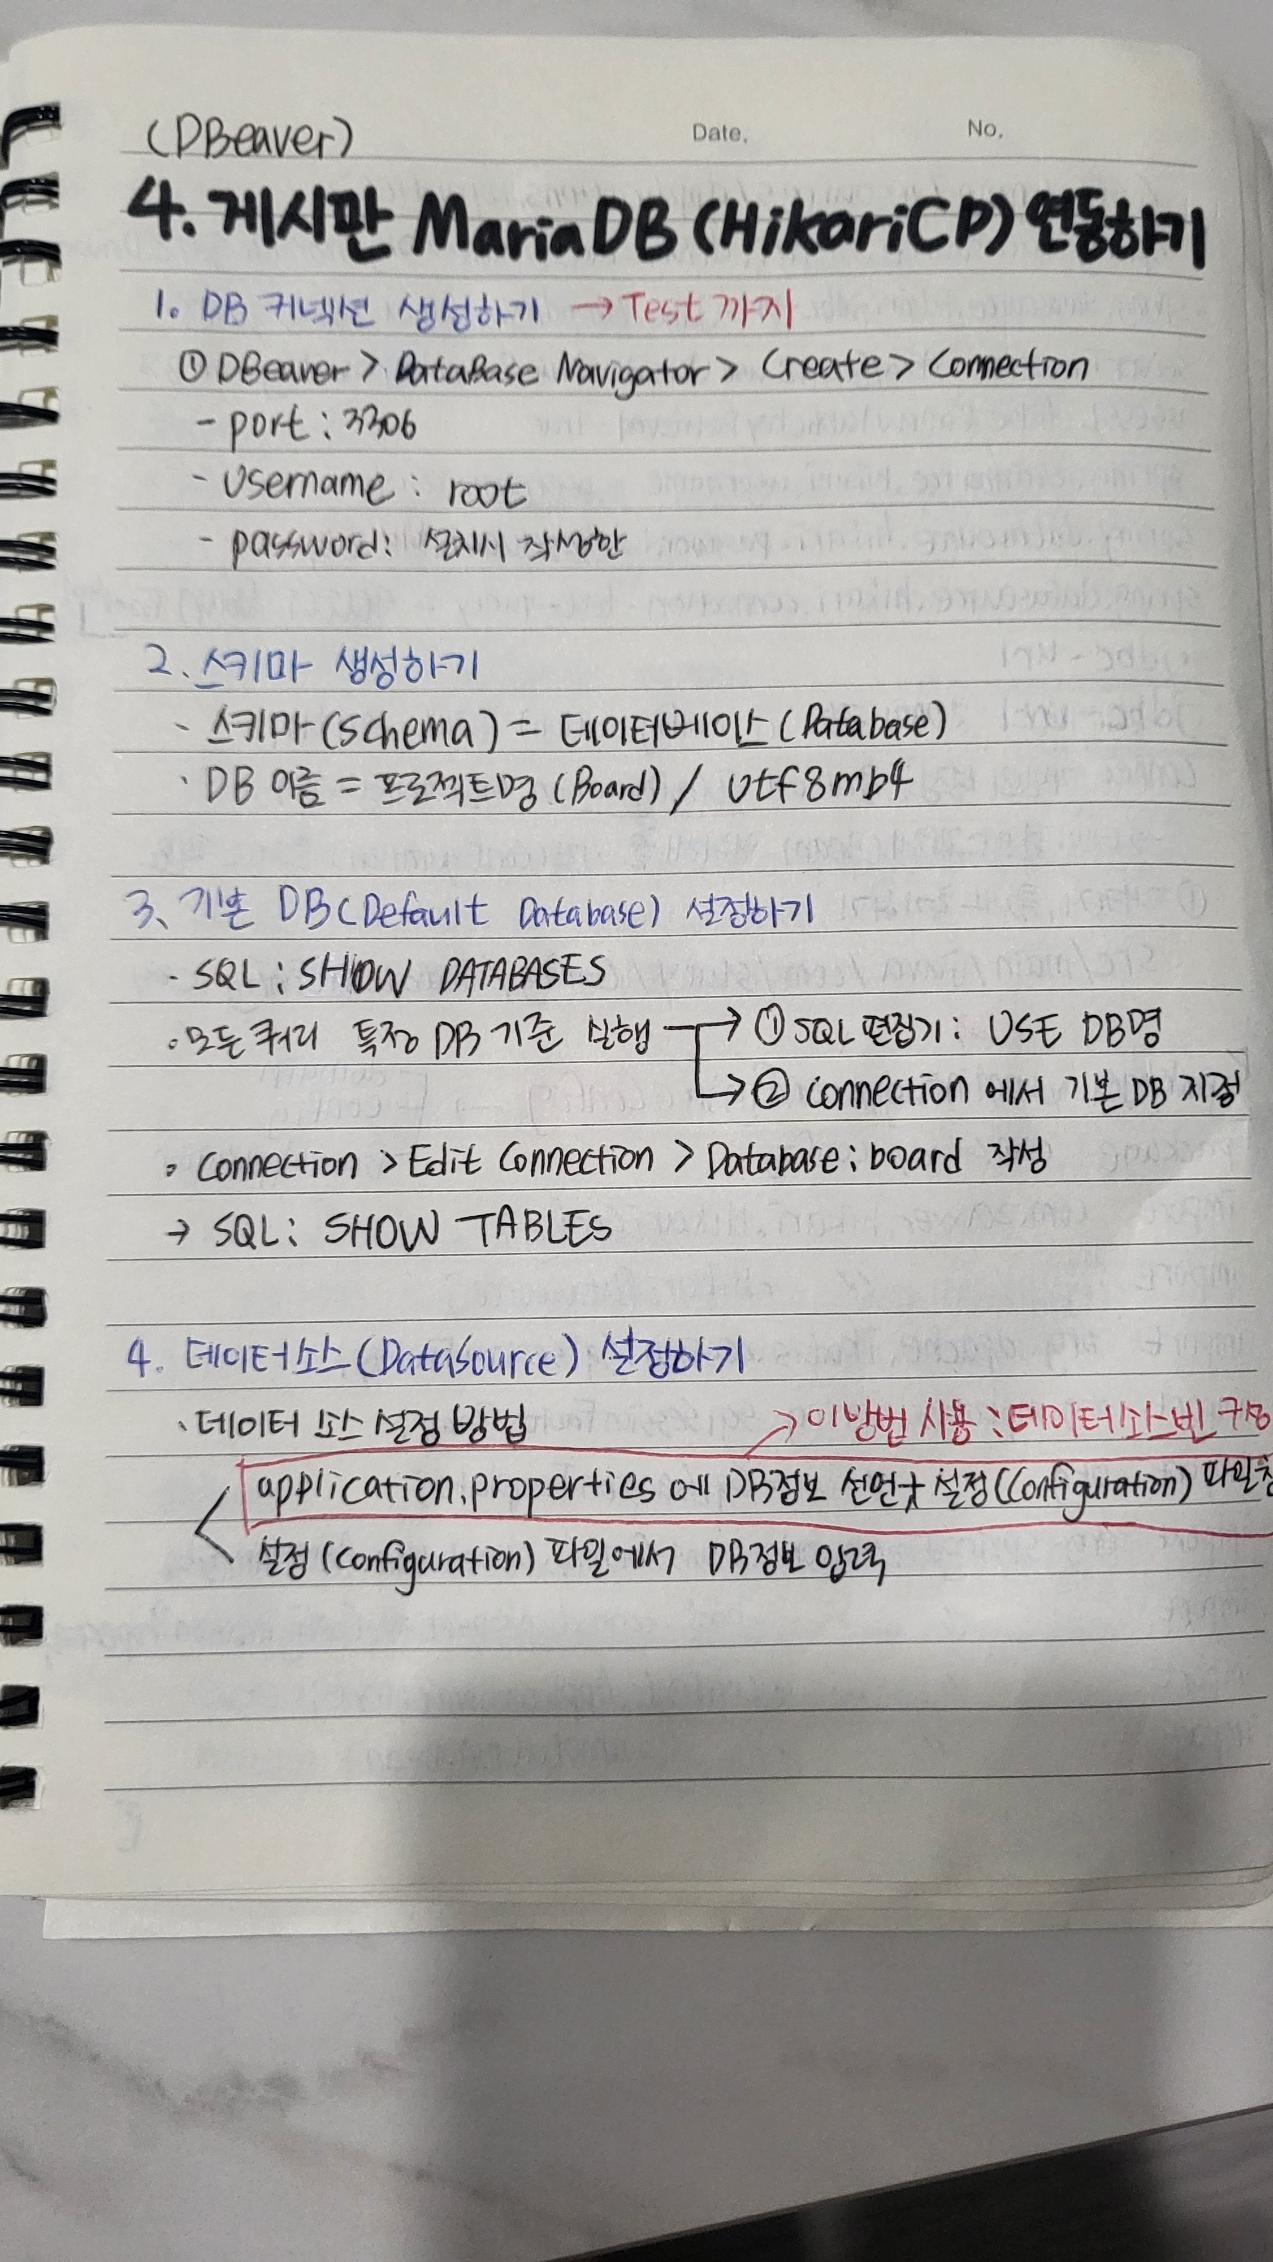 (DBeaver)
Date. No.
4. 게시판 MariaDB (HikariCP) 연동하기
1. DB 커넥션 생성하기 → Test 까지
① DBeaver > DataBase Navigator > Create > Connection
- port : 3306
- username : root
- password : 설치시 작성한
2. 스키마 생성하기
· 스키마(schema) = 데이터베이스 (Database)
· DB 이름 = 프로젝트명 (Board) / utf8mb4
3. 기본 DB (Default Database) 설정하기
· SQL : SHOW DATABASES
· 모든 쿼리 특정 DB 기준 실행 → ① SQL 편집기 : USE DB명
→ ② Connection 에서 기본 DB 지정
· Connection > Edit Connection > Database : board 작성
→ SQL : SHOW TABLES
4. 데이터소스 (DataSource) 설정하기
· 데이터 소스 설정 방법 → 이방법 사용 : 데이터소스 빈
application.properties 에 DB정보 선언 설정 (Configuration) 파일
설정 (Configuration) 파일에서 DB정보 입력